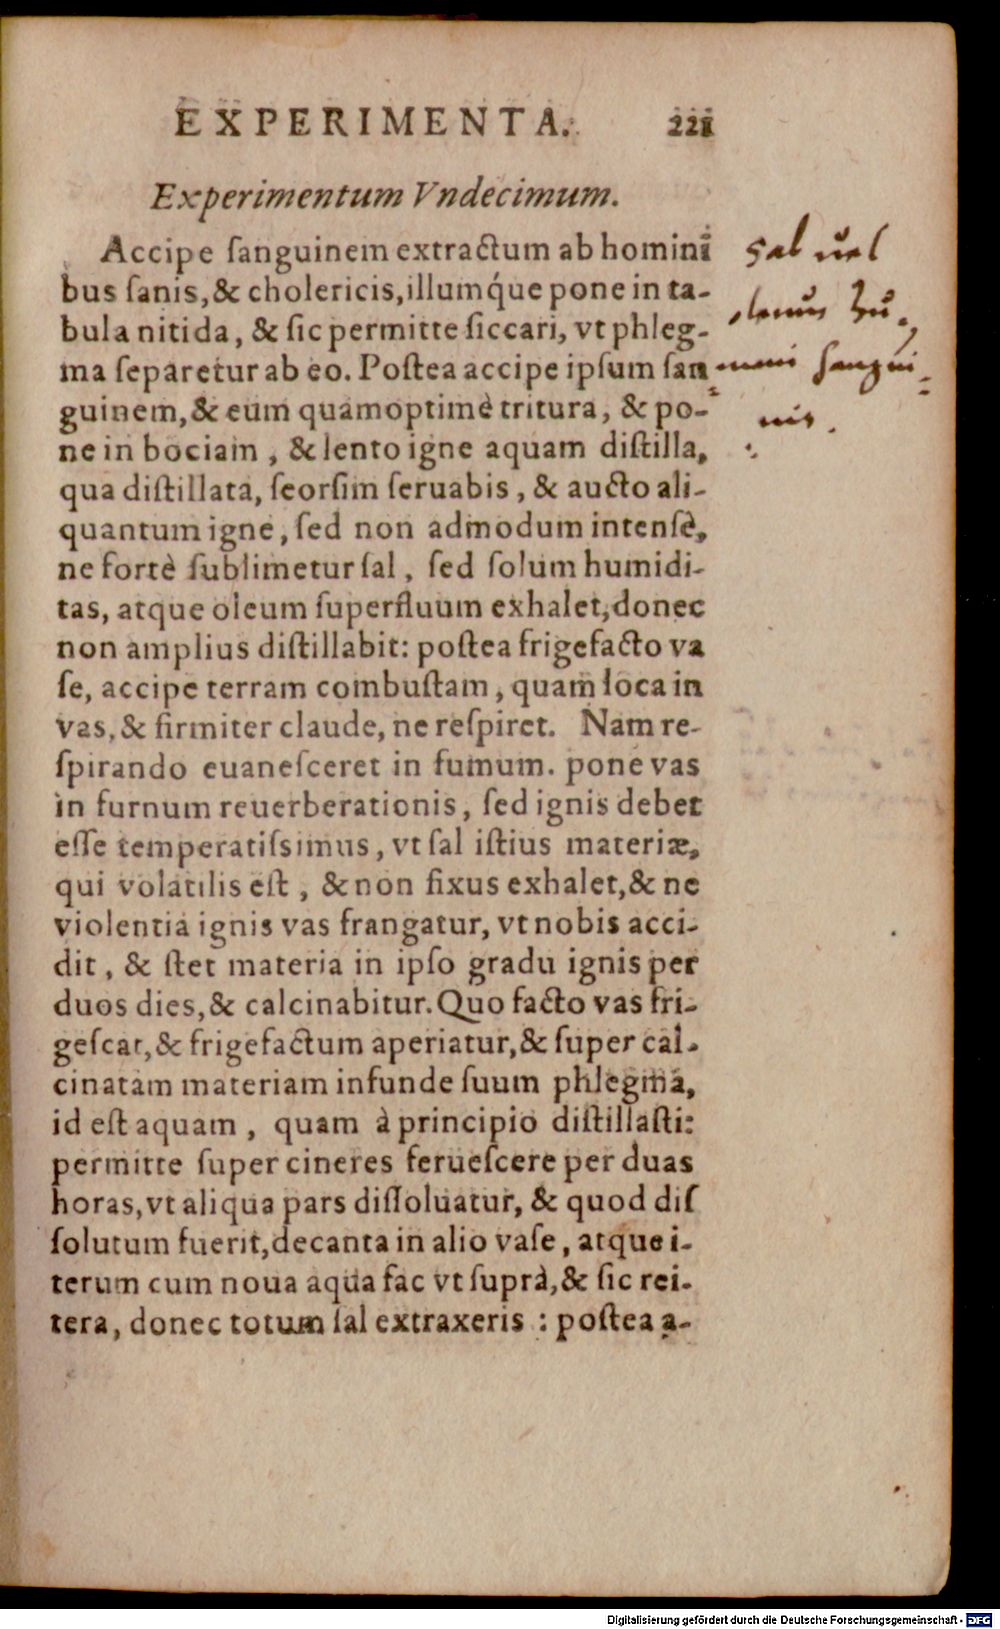 EXPERIMENTA. 221
Experimentum Vndecimum.
Accipe ſanguinem extractum ab homini
bus ſanis, & cholericis, illumq́ue pone in ta-
bula nitida, & ſic permitte ſiccari, vt phleg-
ma ſeparetur ab eo. Poſtea accipe ipſum ſan
guinem, & eum quamoptimè tritura, & po-
ne in bociam, & lento igne aquam diſtilla,
qua diſtillata, ſeorſim ſeruabis, & aucto ali-
quantum igne, ſed non admodum intensè,
ne fortè ſublimetur ſal, ſed ſolum humidi-
tas, atque oleum ſuperfluum exhalet, donec
non amplius diſtillabit: poſtea frigefacto va
ſe, accipe terram combuſtam, quam loca in
vas, & firmiter claude, ne reſpiret. Nam re-
ſpirando euaneſceret in fumum. pone vas
in furnum reuerberationis, ſed ignis debet
eſſe temperatiſsimus, vt ſal iſtius materiæ,
qui volatilis eſt, & non fixus exhalet, & ne
violentia ignis vas frangatur, vt nobis acci-
dit, & ſtet materia in ipſo gradu ignis per
duos dies, & calcinabitur. Quo facto vas fri-
geſcat, & frigefactum aperiatur, & ſuper cal-
cinatam materiam infunde ſuum phlegma,
id eſt aquam, quam à principio diſtillaſti:
permitte ſuper cineres ferueſcere per duas
horas, vt aliqua pars diſſoluatur, & quod diſ
ſolutum fuerit, decanta in alio vaſe, atque i-
terum cum noua aqua fac vt ſuprà, & ſic rei-
tera, donec totum ſal extraxeris: poſtea a-
Sal uel
hu-
mani sangui-
nis.
Digitalisierung gefördert durch die Deutsche Forschungsgemeinschaft - DFG